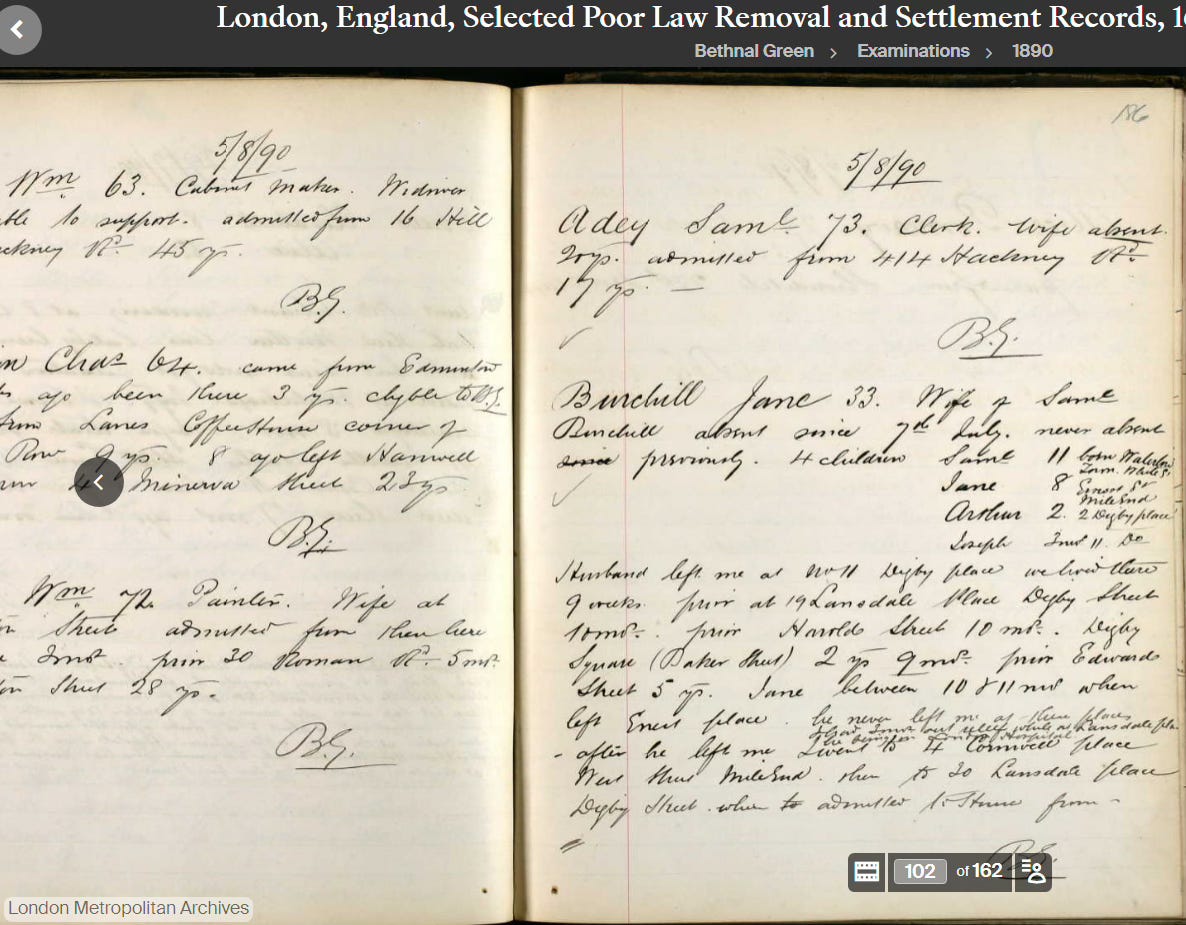 London, England, Selected Poor Law Removal and Settlement Records, 1
Bethnal Green > Examinations > 1890
5/8/90
Wm 63. Cabinet Maker. Widower
to support. admitted from 16 Hill
Rd. 45 ys.
B.G.
Chas 64. came from Edmonton
ago been there 3 ys. to B.G.
Lanes Coffee House corner of
9 ys. 8 ago left Hanwell
Minerva Street 23 ys
B.G.
Wm 72 Painter. Wife at
Street admitted from then here
3 mos. prior 30 Roman Rd. 5 mos.
Street 28 ys.
B.G.
186
5/8/90
Adey Saml 73. Clerk. Wife absent
20 ys. admitted from 414 Hackney Rd
17 ys. —
B.G.
Burchill Jane 33. Wife of Saml
Burchill absent since 7th July. never absent
since previously. 4 children Saml 11 born Waterloo
Jane 8 Ernest St
Mile End
Arthur 2. 2 Digby place
Joseph 3 mos 11. Do
Husband left me at No 11 Digby place we lived there
9 weeks. prior at 19 Lansdale Place Digby Street
10 mos. prior Harolds Street 10 mos. Digby
Square (Baker Street) 2 ys 9 mos. prior Edwards
Street 5 ys. Jane between 10 & 11 mos when
left Ernest place. he never left me at these places
I had out relief while at Lansdale pla
he being in Hospital
- after he left me I went to 4 Cornwell place
West Street Mile End. then to 30 Lansdale place
Digby Street. when to admitted to House from -
B.G.
102 of 162
London Metropolitan Archives